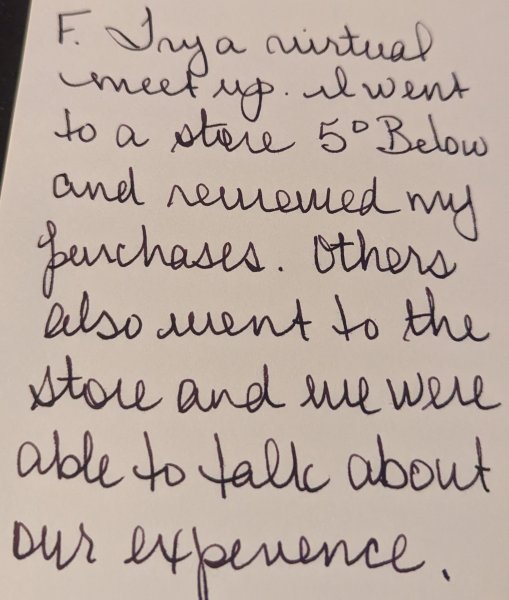 F. Try a virtual
meet up. I went
to a store 5° Below
and reviewed my
purchases. Others
also went to the
store and we were
able to talk about
our experience.